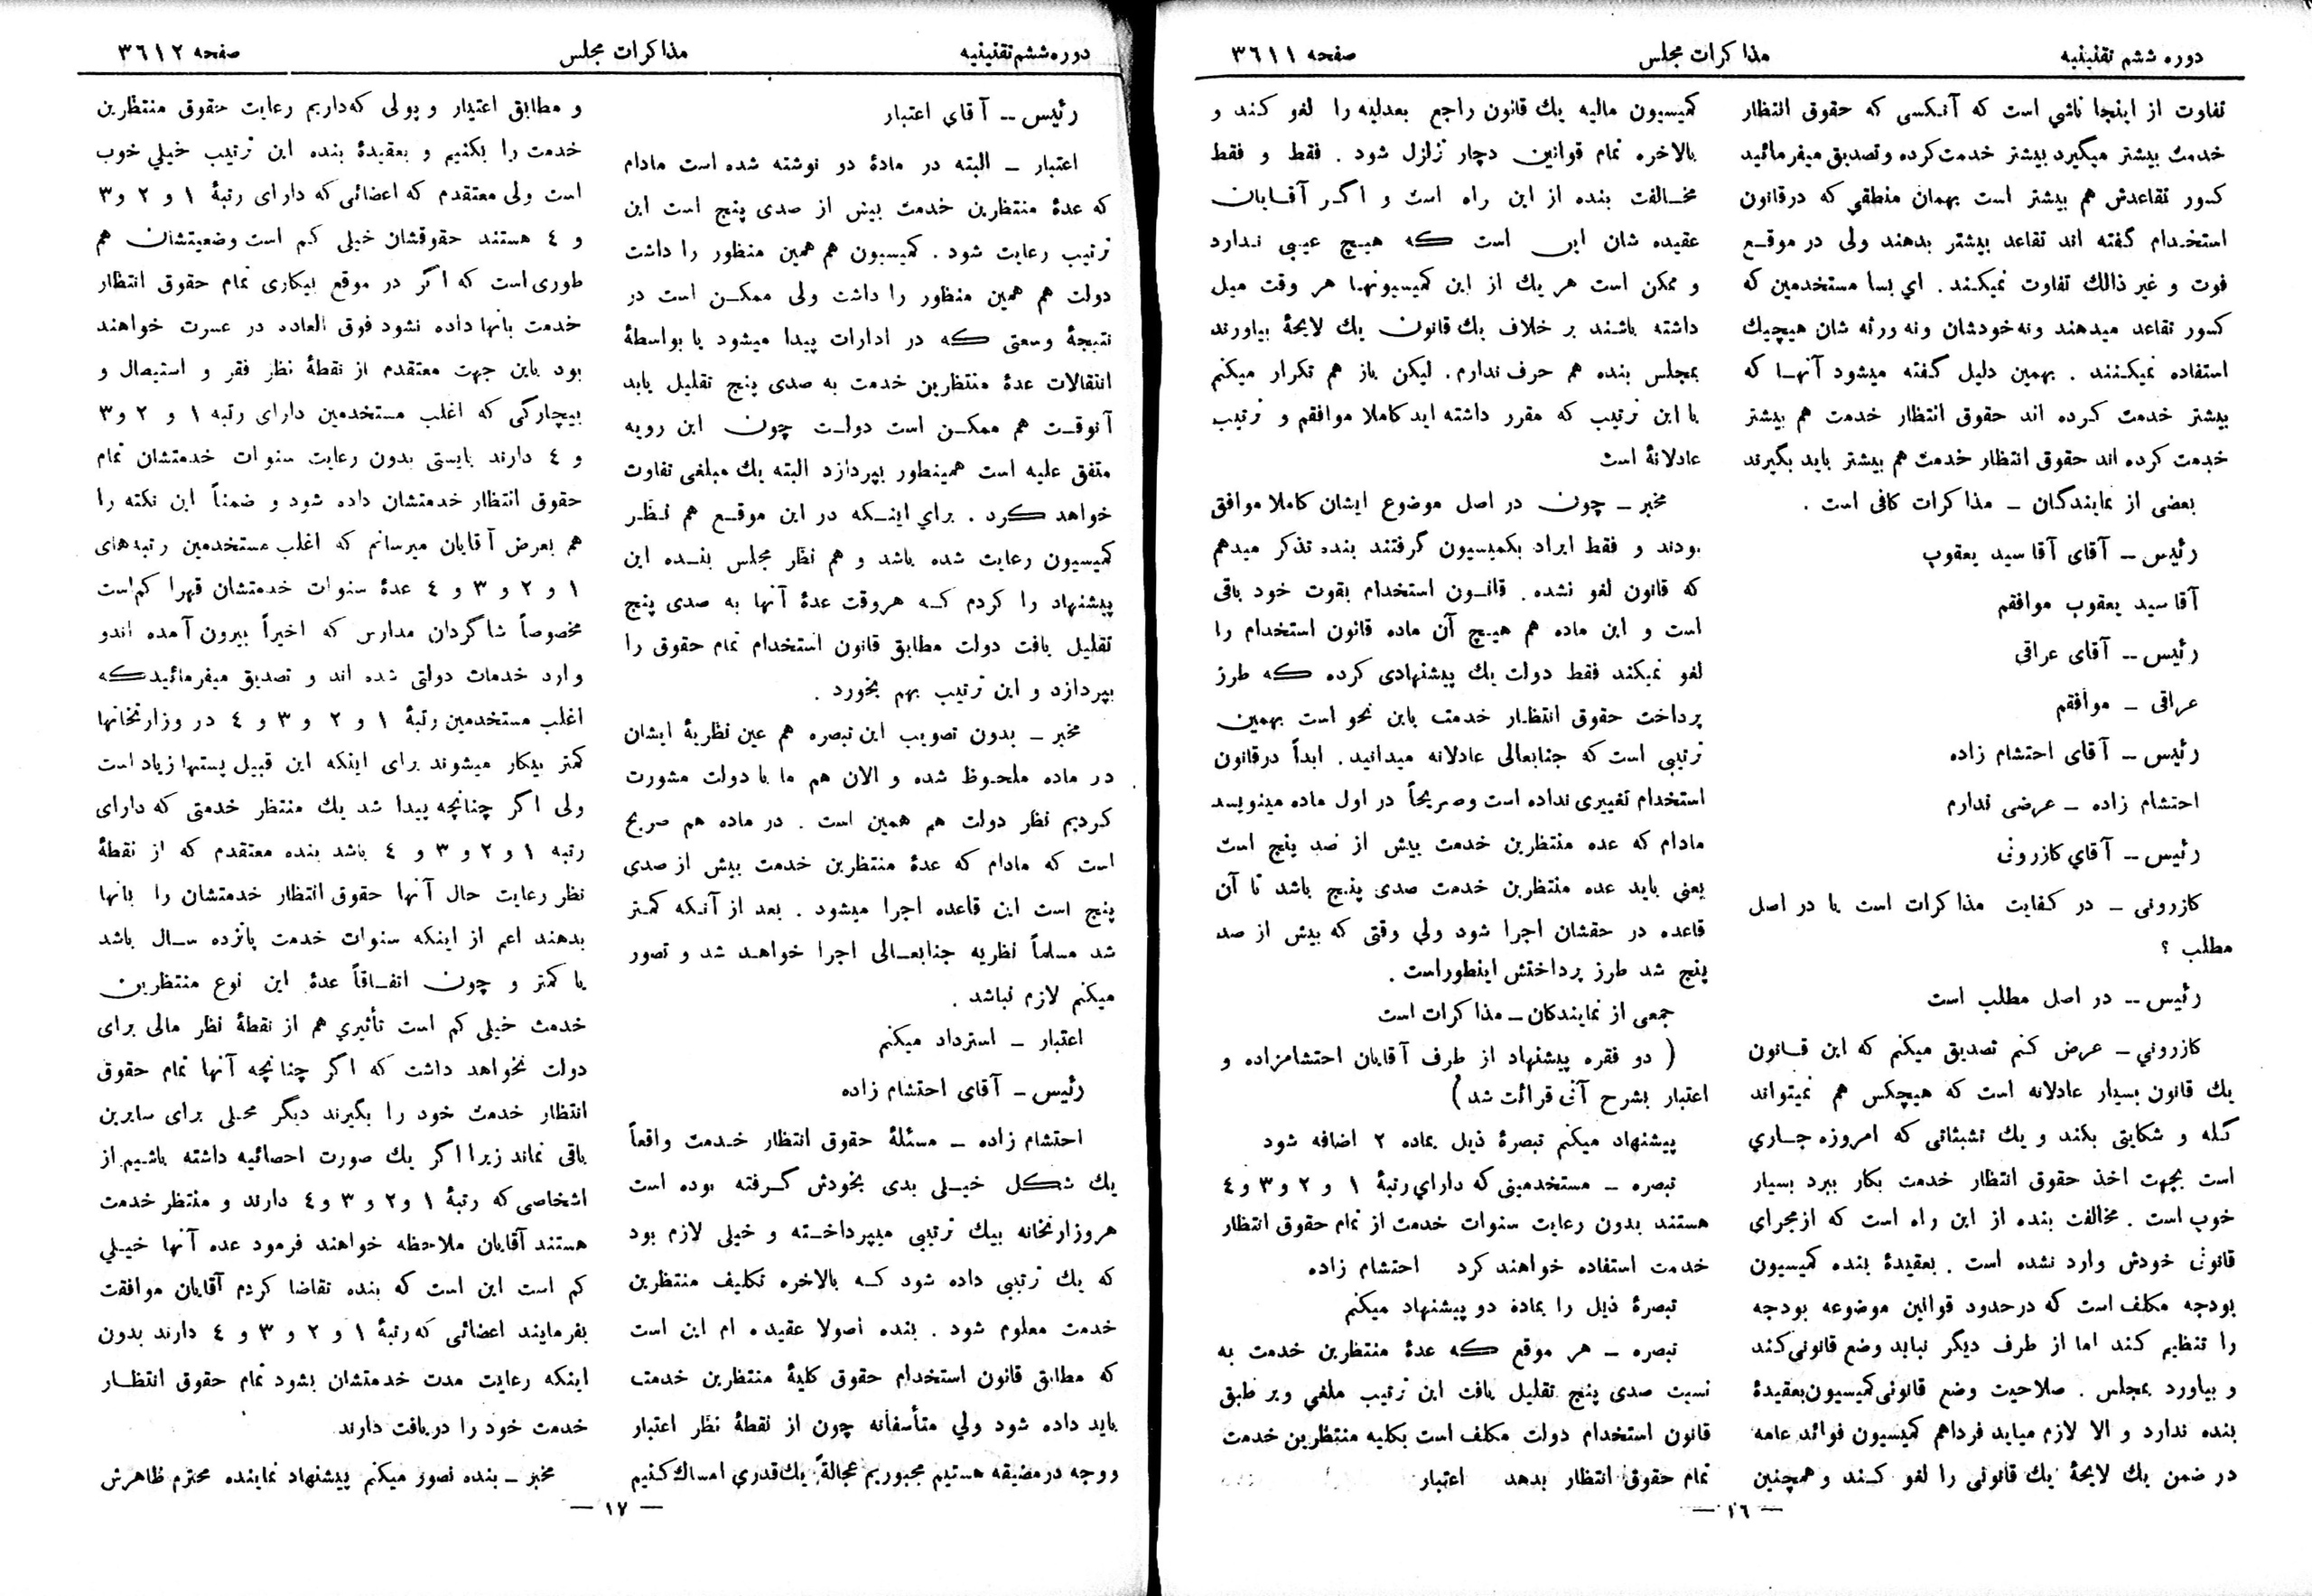 دوره ششم تقنینیه
مذاکرات مجلس
صفحه ۳٦۱۱
تفاوت از اینجا ناشي است که آنکسی که حقوق انتظار
خدمت بیشتر میگیرد بیشتر خدمت کرده و تصدیق میفرمائید
کسور تقاعدش هم بیشتر است بهمان منطقي که درقانون
استخدام گفته اند تقاعد بیشتر بدهند ولی در موقع
فوت و غیر ذالك تفاوت نمیکند . اي بسا مستخدمین که
کسور تقاعد میدهند ونه خودشان ونه ورثه شان هیچیك
استفاده نمیکنند . بهمین دلیل گفته میشود آنها که
بیشتر خدمت کرده اند حقوق انتظار خدمت هم بیشتر
خدمت کرده اند حقوق انتظار خدمت هم بیشتر باید بگیرند
بعضی از نمایندگان ـ مذاکرات کافی است .
رئیس -- آقای آقا سید یعقوب
آقا سید یعقوب موافقم
رئیس -- آقای عراقی
عراقی ـ موافقم
رئیس -- آقای احتشام زاده
احتشام زاده ـ عرضی ندارم
رئیس -- آقاي کازرونی
کازرونی ـ در کفایت مذاکرات است یا در اصل
مطلب ؟
رئیس -- در اصل مطلب است
کازروني ـ عرض کنم تصدیق میکنم که این قانون
یك قانون بسیار عادلانه است که هیچکس هم نمیتواند
گله و شکایتی بکند و یك تشبثاتی که امروزه جاري
است بجهت اخذ حقوق انتظار خدمت بکار ببرد بسیار
خوب است . مخالفت بنده از این راه است که ازمجرای
قانونی خودش وارد نشده است . بعقیدهٔ بنده کمیسیون
بودجه مکلف است که درحدود قوانین موضوعه بودجه
را تنظیم کند اما از طرف دیگر نباید وضع قانونی کند
و بیاورد بمجلس . صلاحیت وضع قانونی کمیسیون بعقیدهٔ
بنده ندارد و الا لازم میاید فرداهم کمیسیون فوائد عامه
در ضمن یك لایحهٔ یك قانونی را لغو کند و همچنین
کمیسیون مالیه یك قانون راجع بعدلیه را لغو کند و
بالاخره تمام قوانین دچار تزلزل شود . فقط و فقط
مخالفت بنده از این راه است و اگر آقایان
عقیده شان این است که هیچ عیبی ندارد
و ممکن است هر یك از این کمیسیونها هر وقت میل
داشته باشند بر خلاف یك قانون یك لایحهٔ بیاورند
بمجلس بنده هم حرف ندارم . لیکن باز هم تکرار میکنم
با این ترتیب که مقرر داشته اید کاملا موافقم و ترتیب
عادلانهٔ است
مخبر ـ چون در اصل موضوع ایشان کاملا موافق
بودند و فقط ایراد بکمیسیون گرفتند بنده تذکر میدهم
که قانون لغو نشده . قانون استخدام بقوت خود باقی
است و این ماده هم هیچ آن ماده قانون استخدام را
لغو نمیکند فقط دولت یك پیشنهادی کرده که طرز
پرداخت حقوق انتظار خدمت باین نحو است بهمین
ترتیبی است که جنابعالی عادلانه میدانید . ابداً درقانون
استخدام تغییری نداده است وصریحاً در اول ماده مینویسد
مادام که عده منتظرین خدمت بیش از صد پنج است
یعنی باید عده منتظرین خدمت صدی پنج باشد تا آن
قاعده در حقشان اجرا شود ولی وقتی که بیش از صد
پنج شد طرز پرداختش اینطوراست .
جمعی از نمایندکان ـ مذاکرات است
( دو فقره پیشنهاد از طرف آقایان احتشامزاده و
اعتبار بشرح آتی قرائت شد )
پیشنهاد میکنم تبصرهٔ ذیل بماده ۲ اضافه شود
تبصره ـ مستخدمینی که داراي رتبهٔ ۱ و ۲ و ۳ و ٤
هستند بدون رعایت سنوات خدمت از تمام حقوق انتظار
خدمت استفاده خواهند کرد احتشام زاده
تبصرهٔ ذیل را بمادهٔ دو پیشنهاد میکنم
تبصره ـ هر موقع که عدهٔ منتظرین خدمت به
نسبت صدی پنج تقلیل یافت این ترتیب ملغی و بر طبق
قانون استخدام دولت مکلف است بکلیه منتظرین خدمت
تمام حقوق انتظار بدهد اعتبار
— ۱٦ —
دوره ششم تقنینیه
مذاکرات مجلس
صفحه ۳٦۱۲
رئیس -- آقای اعتبار
اعتبار ـ البته در مادهٔ دو نوشته شده است مادام
که عدهٔ منتظرین خدمت بیش از صدی پنج است این
ترتیب رعایت شود . کمیسیون هم همین منظور را داشت
دولت هم همین منظور را داشت ولی ممکن است در
نتیجهٔ وسعتی که در ادارات پیدا میشود یا بواسطهٔ
انتقالات عدهٔ منتظرین خدمت به صدی پنج تقلیل یابد
آنوقت هم ممکن است دولت چون این رویه
متفق علیه است همینطور بپردازد البته یك مبلغی تفاوت
خواهد کرد . براي اینکه در این موقع هم نظر
کمیسیون رعایت شده باشد و هم نظر مجلس بنده این
پیشنهاد را کردم که هروقت عدهٔ آنها به صدی پنج
تقلیل یافت دولت مطابق قانون استخدام تمام حقوق را
بپردازد و این ترتیب بهم بخورد .
مخبر ـ بدون تصویب این تبصره هم عین نظریهٔ ایشان
در ماده ملحوظ شده و الان هم ما با دولت مشورت
کردیم نظر دولت هم همین است . در ماده هم صریح
است که مادام که عدهٔ منتظرین خدمت بیش از صدی
پنج است این قاعده اجرا میشود . بعد از آنکه کمتر
شد مسلماً نظریه جنابعالی اجرا خواهد شد و تصور
میکنم لازم نباشد .
اعتبار ـ استرداد میکنم
رئیس ـ آقای احتشام زاده
احتشام زاده ـ مسئلهٔ حقوق انتظار خدمت واقعاً
یك شکل خیلی بدی بخودش گرفته بوده است
هروزارتخانه بیك ترتیبی میپرداخته و خیلی لازم بود
که یك ترتیبی داده شود که بالاخره تکلیف منتظرین
خدمت معلوم شود . بنده اصولا عقیده ام این است
که مطابق قانون استخدام حقوق کلیهٔ منتظرین خدمت
باید داده شود ولي متأسفانه چون از نقطهٔ نظر اعتبار
ووجه درمضیقه هستیم مجبوریم عجالةً یك قدري امساك کنیم
و مطابق اعتبار و پولی که داریم رعایت حقوق منتظرین
خدمت را بکنیم و بعقیدهٔ بنده این ترتیب خیلي خوب
است ولی معتقدم که اعضائی که دارای رتبهٔ ۱ و ۲ و ۳
و ٤ هستند حقوقشان خیلی کم است وضعیتشان هم
طوری است که اگر در موقع بیکاری تمام حقوق انتظار
خدمت بانها داده نشود فوق العاده در عسرت خواهند
بود باین جهت معتقدم از نقطهٔ نظر فقر و استیصال و
بیچارگی که اغلب مستخدمین دارای رتبه ۱ و ۲ و ۳
و ٤ دارند بایستی بدون رعایت سنوات خدمتشان تمام
حقوق انتظار خدمتشان داده شود و ضمناً این نکته را
هم بعرض آقایان میرسانم که اغلب مستخدمین رتبه‌های
۱ و ۲ و ۳ و ٤ عدهٔ سنوات خدمتشان قهرا کم است
مخصوصاً شاگردان مدارس که اخیراً بیرون آمده اندو
وارد خدمات دولتی شده اند و تصدیق میفرمائید که
اغلب مستخدمین رتبهٔ ۱ و ۲ و ۳ و ٤ در وزارتخانها
کمتر بیکار میشوند برای اینکه این قبیل پستها زیاد است
ولی اگر چنانچه پیدا شد یك منتظر خدمتی که دارای
رتبه ۱ و ۲ و ۳ و ٤ باشد بنده معتقدم که از نقطهٔ
نظر رعایت حال آنها حقوق انتظار خدمتشان را بانها
بدهند اعم از اینکه سنوات خدمت پانزده سال باشد
یا کمتر و چون اتفاقاً عدهٔ این نوع منتظرین
خدمت خیلی کم است تأثیري هم از نقطهٔ نظر مالی برای
دولت نخواهد داشت که اگر چنانچه آنها تمام حقوق
انتظار خدمت خود را بگیرند دیگر محلی برای سایرین
باقی نماند زیرا اگر یك صورت احصائیه داشته باشیم از
اشخاصی که رتبهٔ ۱ و ۲ و ۳ و ٤ دارند و منتظر خدمت
هستند آقایان ملاحظه خواهند فرمود عده آنها خیلي
کم است این است که بنده تقاضا کردم آقایان موافقت
بفرمایند اعضائی که رتبهٔ ۱ و ۲ و ۳ و ٤ دارند بدون
اینکه رعایت مدت خدمتشان بشود تمام حقوق انتظار
خدمت خود را دریافت دارند
مخبر ـ بنده تصور میکنم پیشنهاد نماینده محترم ظاهرش
— ۱۷ —